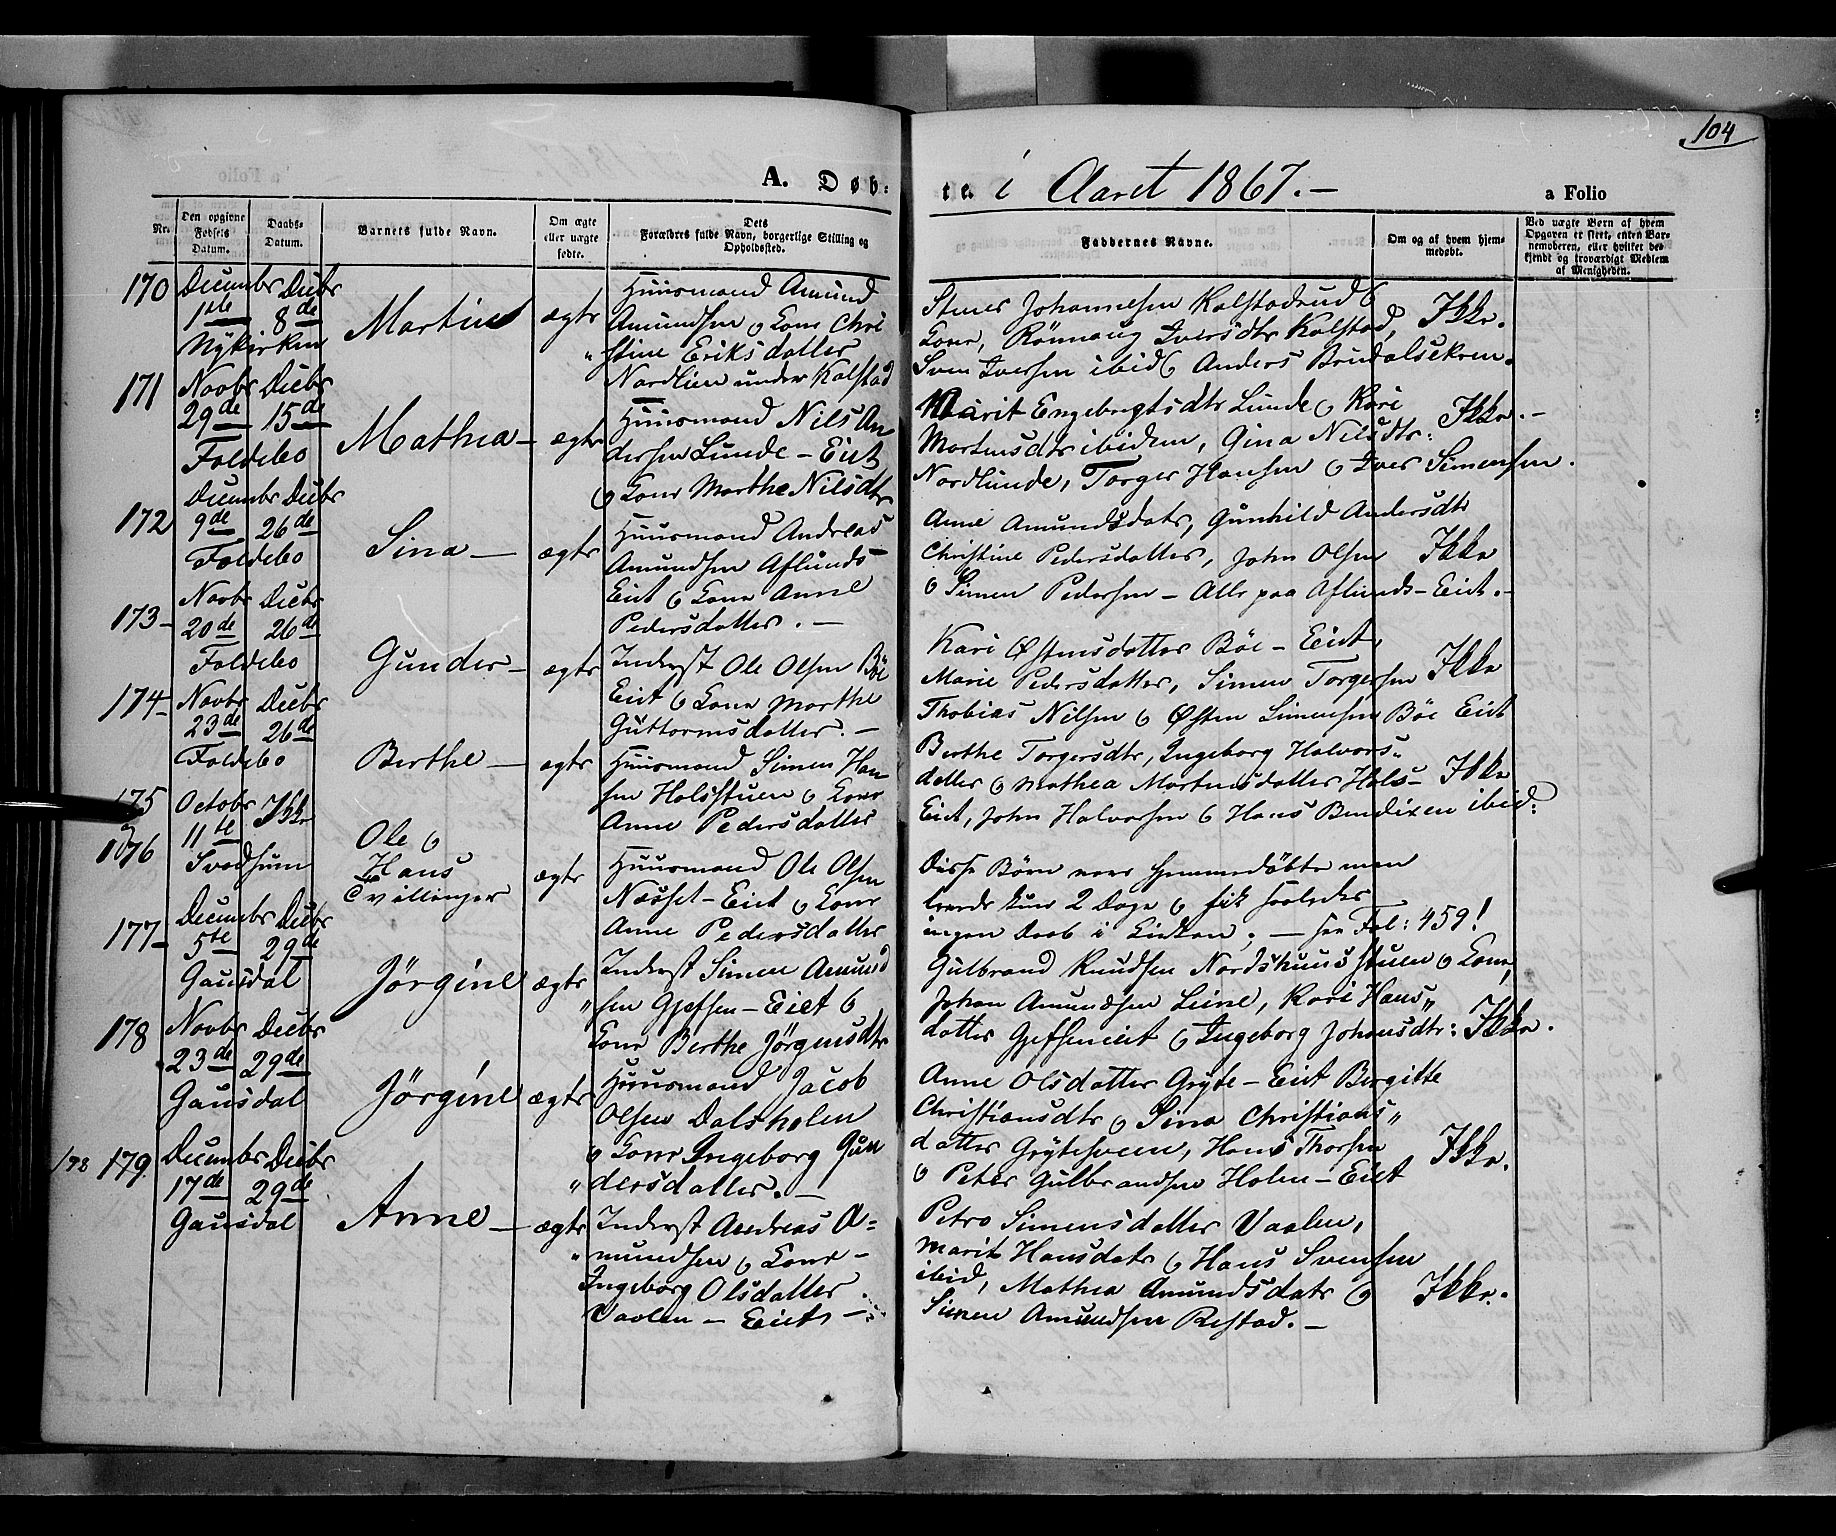 104
A. Døb- te. i Aaret 1867. — a Folio
Nr.
Den opgivne Fødsels Datum.
Daabs-Datum.
Barnets fulde Navn.
Om ægte eller uægte fødte.
Dets Forældres fulde Navn, borgerlige Stilling og Opholdssted.
Faddernes Navne.
Om og af hvem hjemmedøbt.
Ved uægte Børn af hvem Opgaven er skeet, enten Barnemoderen, eller hvilket bekjendt og troværdigt Medlem af Menigheden.
170 Decembr 1ste Decbr 8de Nykirken
Martin
ægte
Huusmand Amund
Amundsen o Kone Chri
stine Eriksdatter
Nordlien under Kalstad
Kone, Rönnaug Iversdtr Kalstad,
Sven Iversen ibid
Ikke.
171 Novbr 29de Decbr 15de Foldebo
Mathea —
ægte
Huusmand Nils An
dersen Lunde — Eiet
o Kone Marthe Nilsdtr
Marit Engebregtsdtr Lunde o Kari
Mortensdtr ibidem, Gina Nilsdtr:
Nordlunde, Torger Hansen o Iver Simensen.
Ikke. —
172 Decembr 9de Decbr 26de Foldebo
Sina —
ægte
Huusmand Andreas
Amundsen Aflunds-
Eiet o Kone Anne
Pedersdatter. —
Anne Amundsdatr, Gunhild Andersdtr
Christine Pedersdatter, John Olsen
o Simen Pedersen — Alle paa Aflunds-Eiet. —
Ikke
173 — Novbr 20de Decbr 26de Foldebo
Gunder —
ægte
Inderst Ole Olsen Böe
Eiet o Kone Marthe
Guttormsdatter. —
Kari Østensdatter Böe — Eiet,
Marie Pedersdatter, Simen Torgersen
Thobias Nilsen o Østen Simensen Böe Eiet
Ikke
174 — Novbr 23de Decbr 26de Foldebo
Berthe —
ægte
Huusmand Simen Han
sen Holsstuen o Kone
Anne Pedersdatter
Berthe Torgersdtr, Ingeborg Halvors-
datter o Mathea Mortensdatter Hols-
Eiet, John Halvorsen o Hans Bendixen ibid:
Ikke
175 o 176 Octobr 11te Ikke Svadsum
Ole o
Hans
Tvillinger
ægte
Huusmand Ole Olsen
Næsset — Eiet o Kone
Anne Pedersdatter
Disse Børn vare hjemmedøbte men
levede kun 2 Dage o fik saaledes
ingen Daab i Kirken; — see Fol: 459!
177 — Decembr 5te Decbr 29de Gausdal
Jörgine
ægte
Inderst Simen Amund
sen Gjefsen — Eiet o
Kone Berthe Jörgensdtr
Gulbrand Knudsen Nordshuusstuen o Kone,
Johan Amundsen Leine, Kari Hans„
datter Gjefseneiet o Ingeborg Johansdtr:
Ikke.
178 Novbr 23de Decbr 29de Gausdal
Jörgine
ægte
Huusmand Jacob
Olsen Dalsholen
o Kone Ingeborg Gun
dersdatter. —
Anne Olsdatter Gryte — Eiet Birgitte
Christiansdtr o Sina Christians„
datter Gryteveen, Hans Thorsen
o Peter Gulbrandsen Holen — Eiet
Ikke.
178 179 Decembr 17de Decbr 29de Gausdal
Anne —
ægte
Inderst Andreas A=
mundsen o Kone —
Ingeborg Olsdatter
Vaalen — Eiet —
Petra Simensdatter Vaalen,
Marit Hansdatr o Hans Svensen
ibid, Mathea Amundsdatr o
Simen Amundsen Restad. —
Ikke.